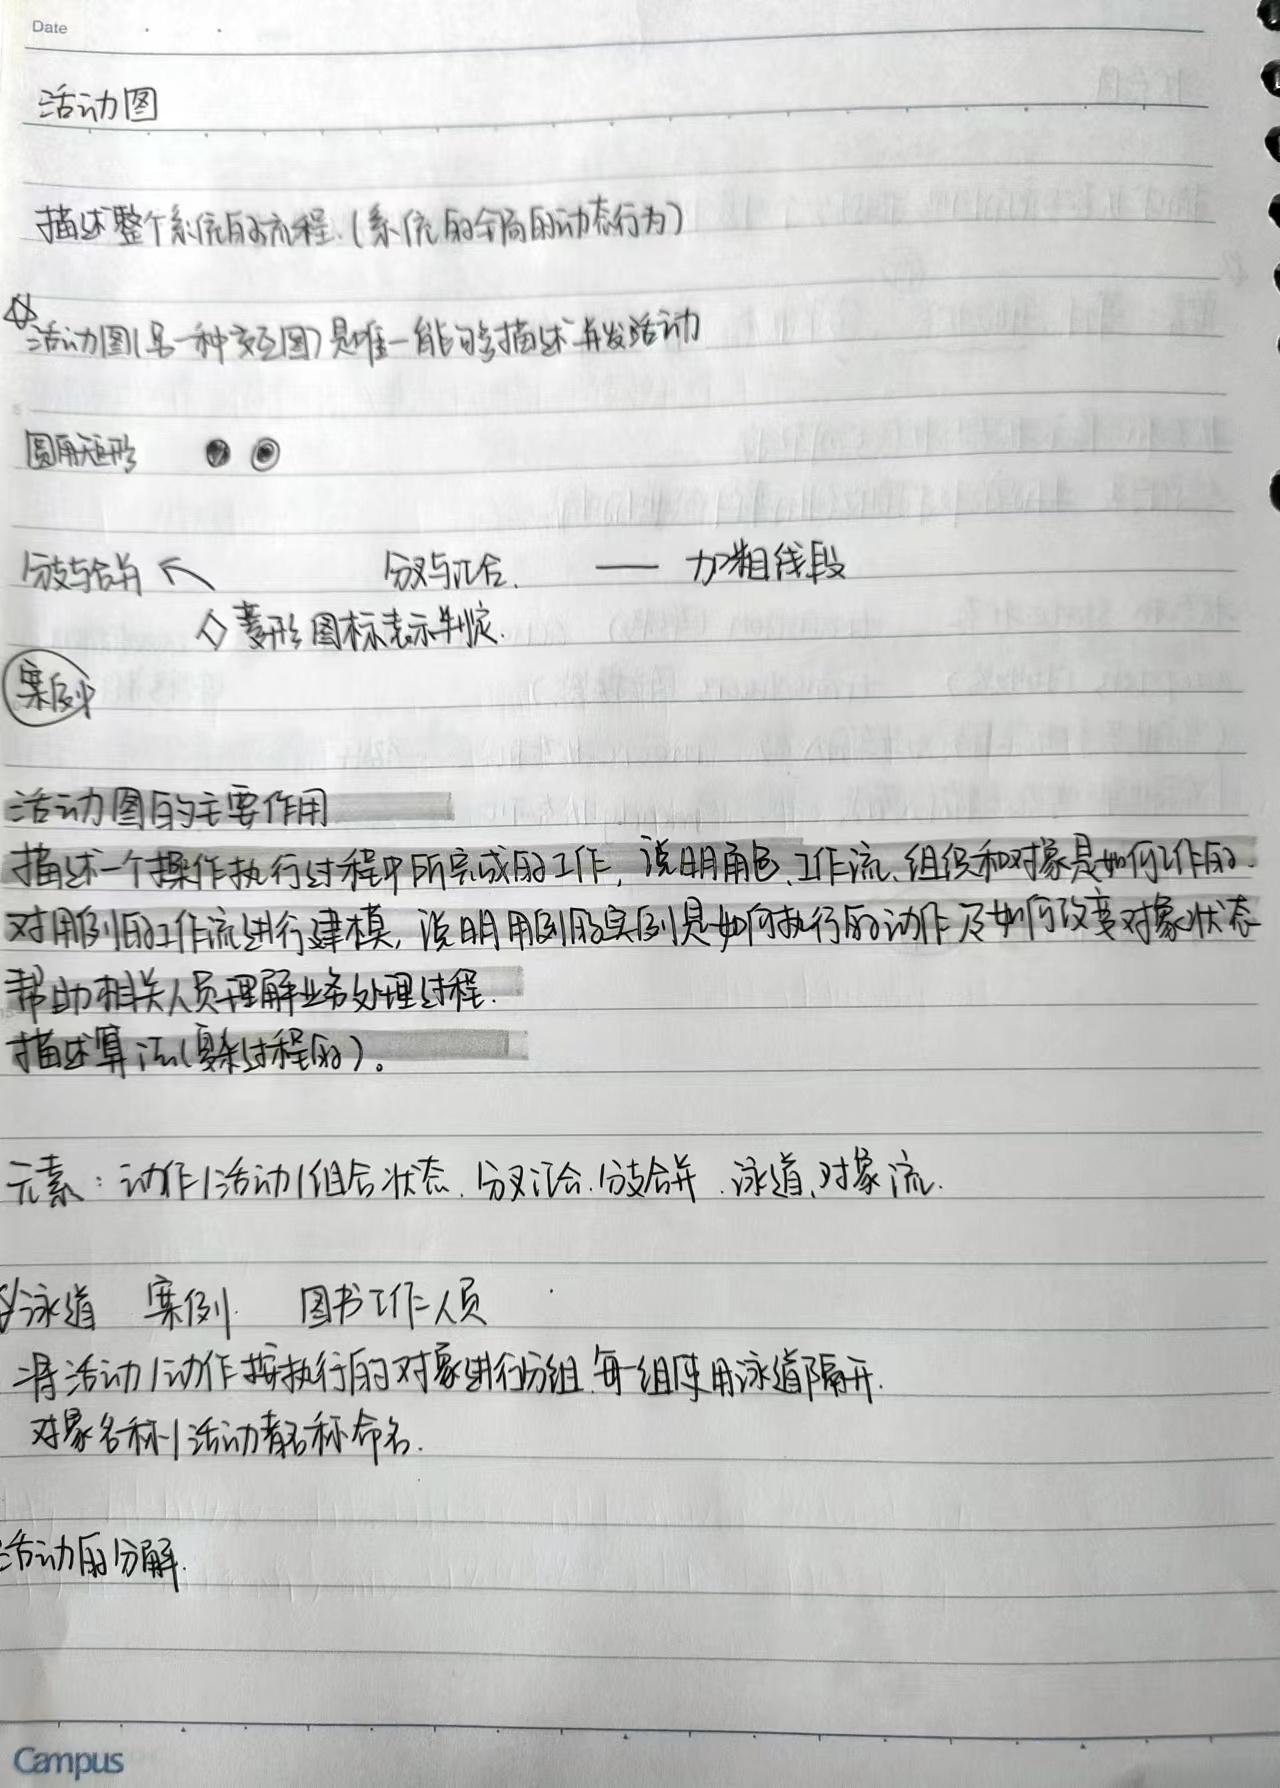 Date
活动图
描述整个系统的流程.(系统的全局的动态行为)
活动图(另一种交互图)是唯一能够描述并发活动
圆角矩形
分支与合并 分叉与汇合. 加粗线段
菱形图标表示判定.
案例
活动图的主要作用
描述一个操作执行过程中所完成的工作,说明角色、工作流、组织和对象是如何工作的.
对用例的工作流进行建模,说明用例的实例是如何执行的动作及如何改变对象状态
帮助相关人员理解业务处理过程.
描述算法(复杂过程的)。
元素:动作/活动/组合状态、分叉汇合、分支合并、泳道、对象流.
泳道 案例. 图书工作人员
将活动/动作按执行的对象进行分组,每一组使用泳道隔开.
对象名称/活动者名称命名.
活动的分解.
Campus